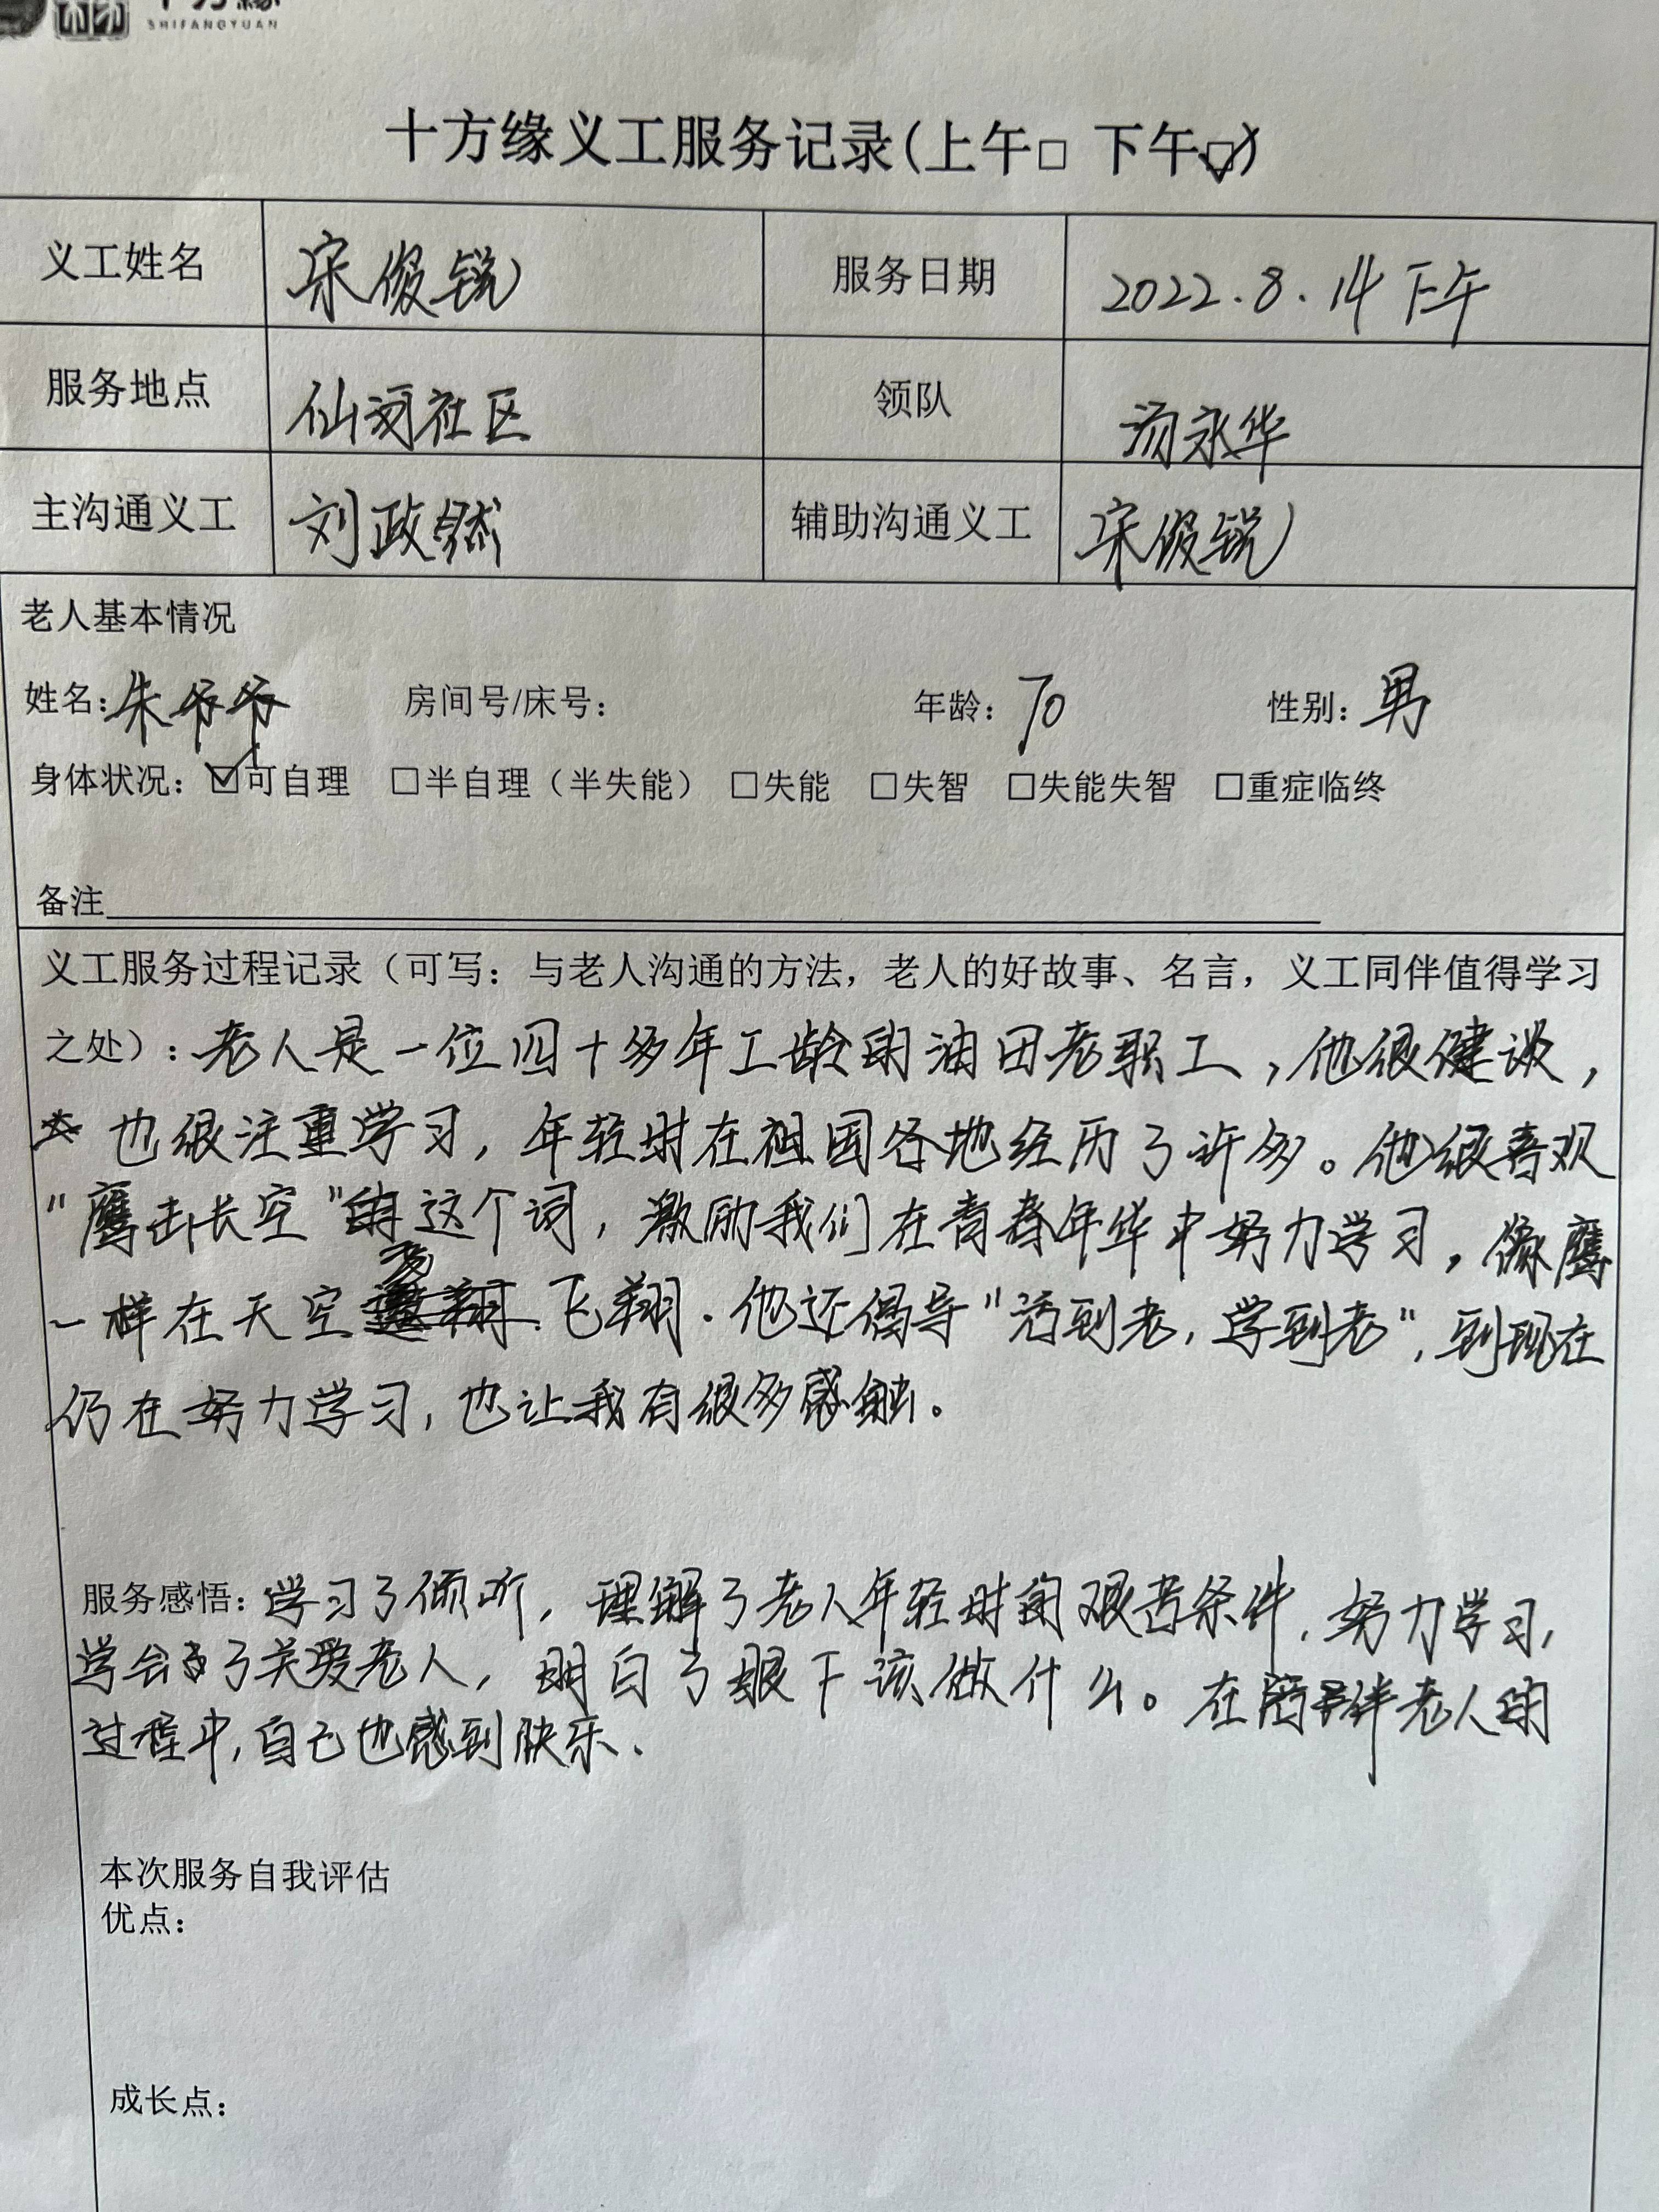 SHIFANGYUAN
十方缘义工服务记录(上午□ 下午☑)
义工姓名 宋俊锐 服务日期 2022.8.14下午
服务地点 仙河社区 领队 汤永华
主沟通义工 刘政 辅助沟通义工 宋俊锐
老人基本情况
姓名：朱爷爷 房间号/床号： 年龄：70 性别：男
身体状况：☑可自理 □半自理（半失能） □失能 □失智 □失能失智 □重症临终
备注
义工服务过程记录（可写：与老人沟通的方法，老人的好故事、名言，义工同伴值得学习
之处）：老人是一位四十多年工龄的油田老职工，他很健谈，
也很注重学习，年轻时在祖国各地经历了许多。他很喜欢
“鹰击长空”这个词，激励我们在青春年华中努力学习，像鹰
一样在天空飞翔．他还倡导“活到老，学到老”，到现在
仍在努力学习，也让我有很多感触。
服务感悟：学习了倾听，理解了老人年轻时的艰苦条件，努力学习，
学会了关爱老人，明白了眼下该做什么。在陪伴老人的
过程中，自己也感到快乐．
本次服务自我评估
优点：
成长点：